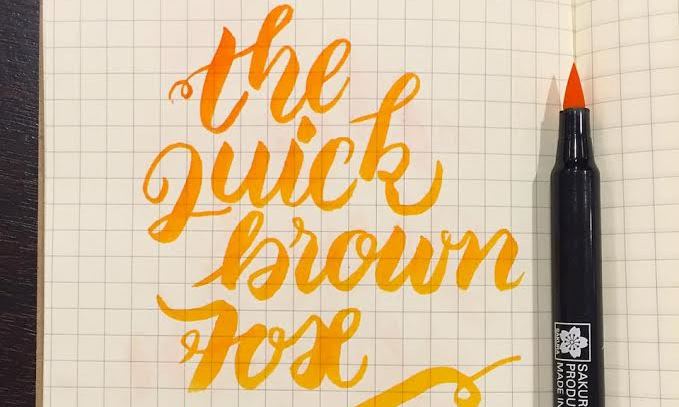 the
Quick
brown
Fox
SAKURA
SAKUR
PRODU
MADE IN